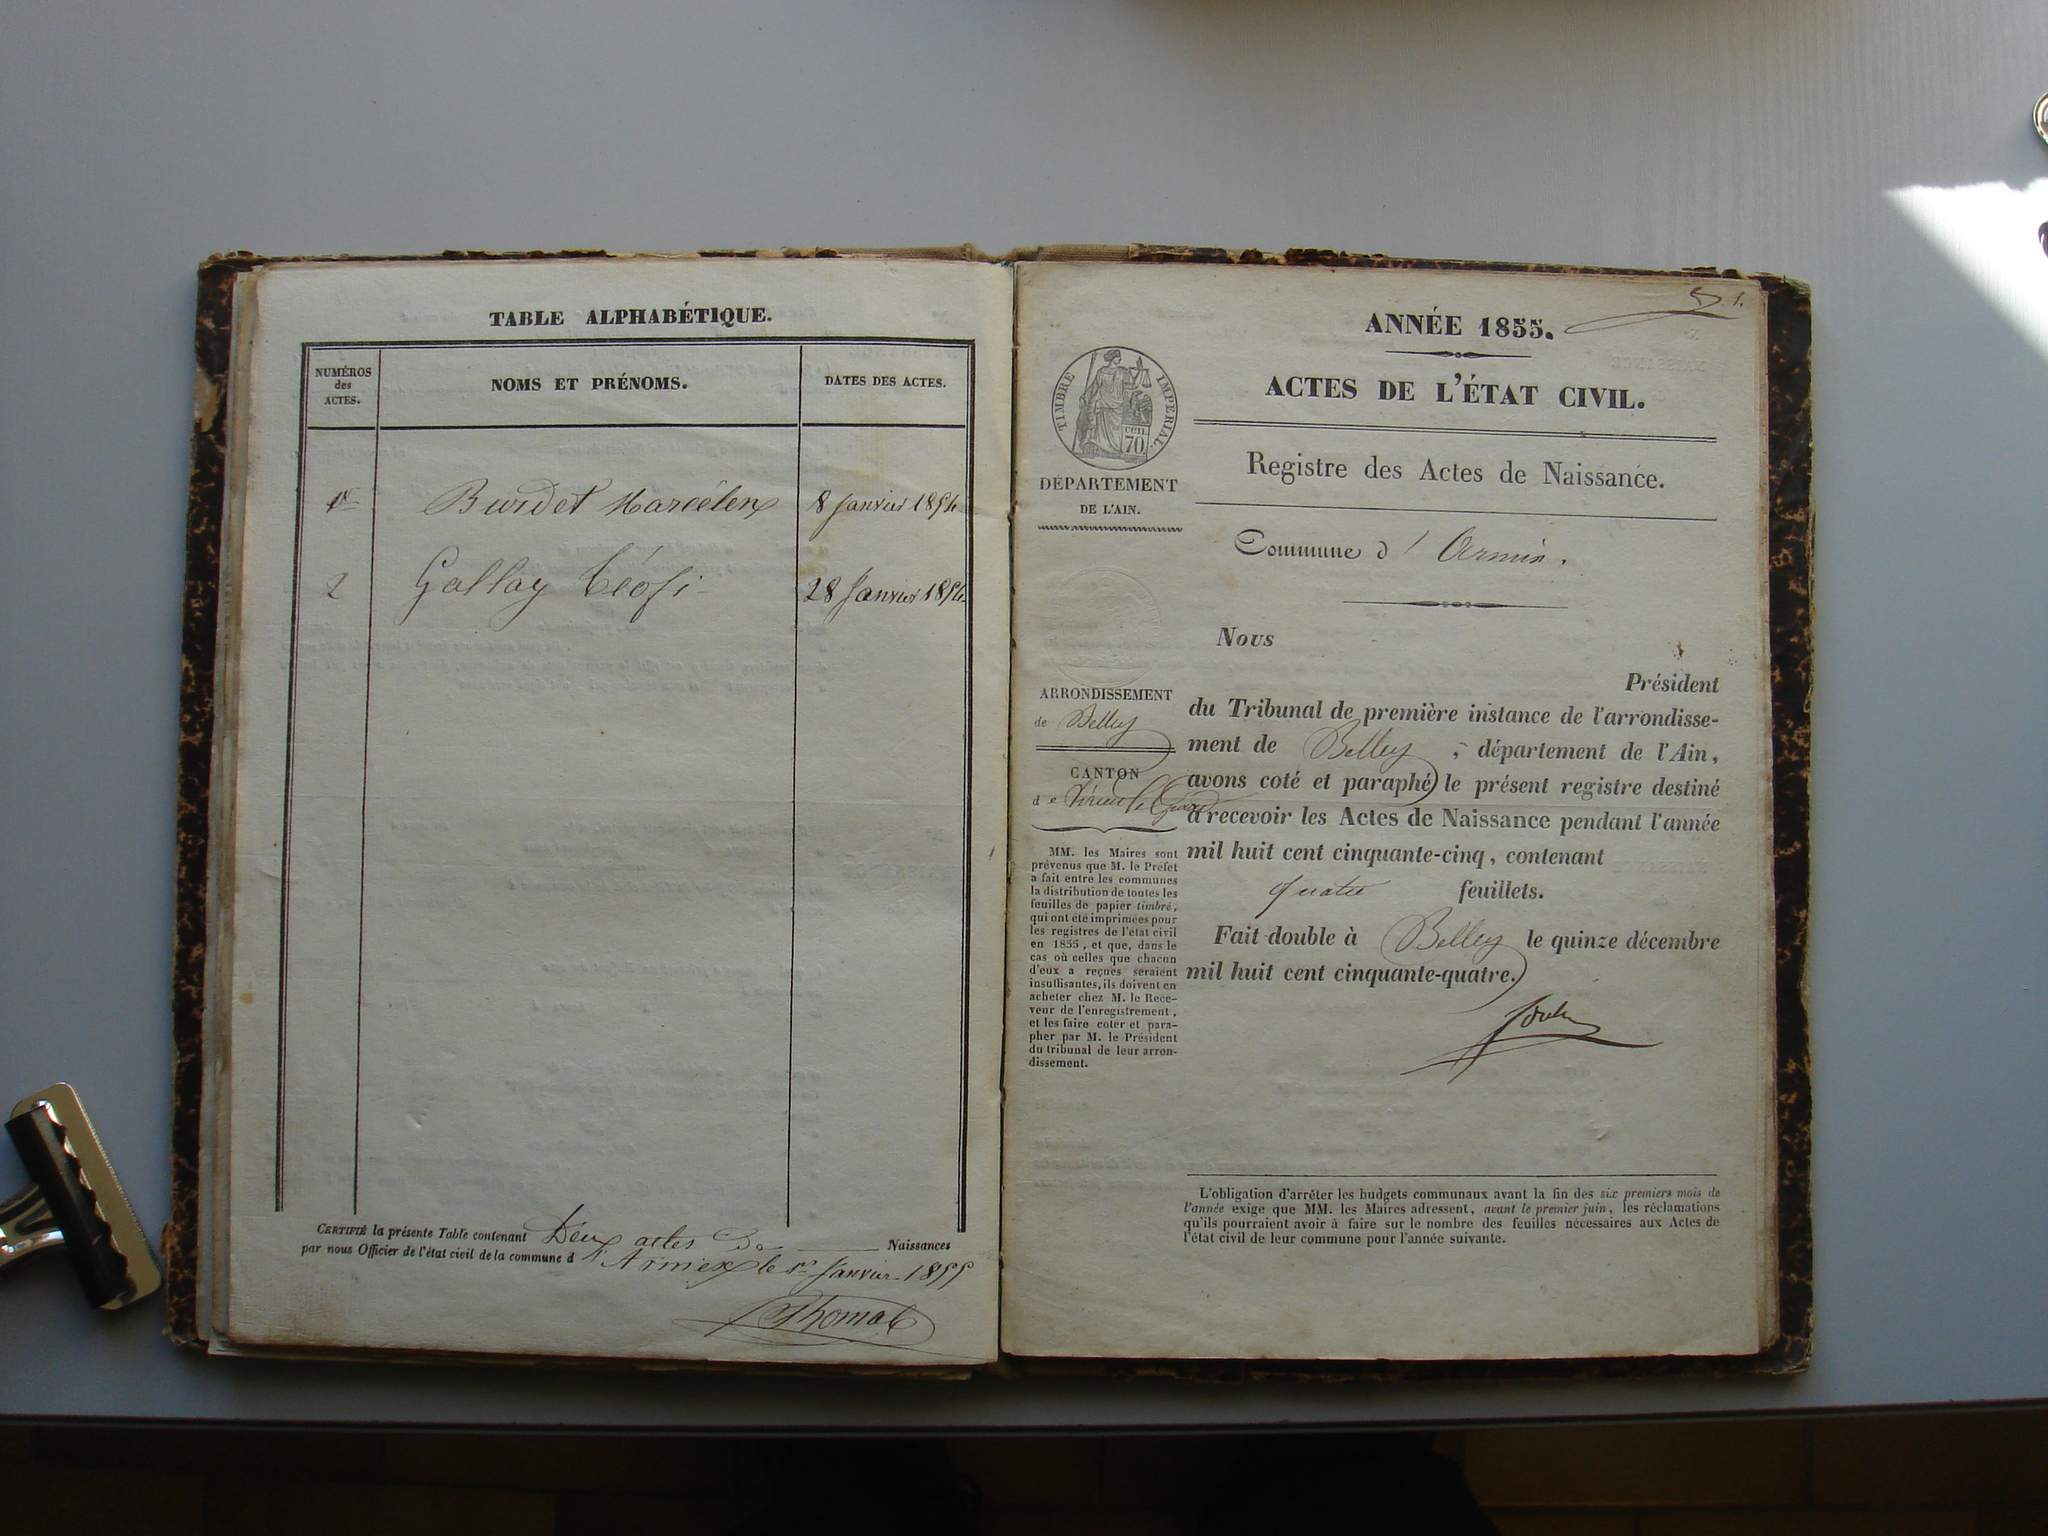 TABLE ALPHABÉTIQUE.
NUMÉROS
des
ACTES.
NOMS ET PRÉNOMS.
DATES DES ACTES.
1er Burdet Marcélen 8 Janvier 1854
2 Gallay Téofi 28 Janvier 1854
CERTIFIÉ la présente Table contenant Deux actes De Naissances
par nous Officier de l'état civil de la commune d'Armix le 1er Janvier 1855
Thomas
1.
ANNÉE 1855.
ACTES DE L'ÉTAT CIVIL.
TIMBRE IMPÉRIAL.
cen.
70.
DÉPARTEMENT
DE L'AIN.
Registre des Actes de Naissance.
Commune d'Armix.
ARRONDISSEMENT
de Belley
CANTON
de Virieu le Grand
MM. les Maires sont
prévenus que M. le Préfet
a fait entre les communes
la distribution de toutes les
feuilles de papier timbré,
qui ont été imprimées pour
les registres de l'état civil
en 1855, et que, dans le
cas où celles que chacun
d'eux a reçues seraient
insuffisantes, ils doivent en
acheter chez M. le Rece-
veur de l'enregistrement,
et les faire coter et para-
pher par M. le Président
du tribunal de leur arron-
dissement.
Nous
Président
du Tribunal de première instance de l'arrondisse-
ment de Belley, département de l'Ain,
avons coté et paraphé le présent registre destiné
à recevoir les Actes de Naissance pendant l'année
mil huit cent cinquante-cinq, contenant
quatre feuillets.
Fait double à Belley le quinze décembre
mil huit cent cinquante-quatre.
L'obligation d'arrêter les budgets communaux avant la fin des six premiers mois de
l'année exige que MM. les Maires adressent, avant le premier juin, les réclamations
qu'ils pourraient avoir à faire sur le nombre des feuilles nécessaires aux Actes de
l'état civil de leur commune pour l'année suivante.